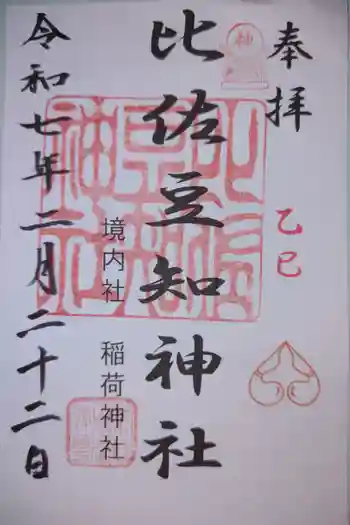 奉拝
乙巳
比佐豆知神社
境内社 稲荷神社
令和七年二月二十二日